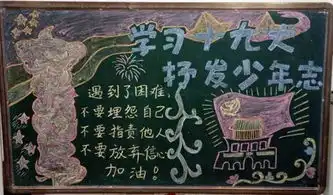 学习十九大
抒发少年志
遇到了困难,
不要埋怨自己
不要指责他人
不要放弃信心
加油!